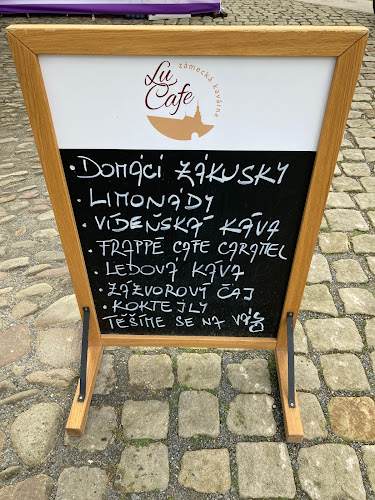 Lu
Cafe
zámecká kavárna
• DOMÁCÍ ZÁKUSKY
• LIMONÁDY
• VÍDEŇSKÁ KÁVA
• FRAPPÉ CAFE CARAMEL
• LEDOVÁ KÁVA
• ZÁZVOROVÝ ČAJ
• KOKTEJLY
TĚŠÍME SE NA VÁS